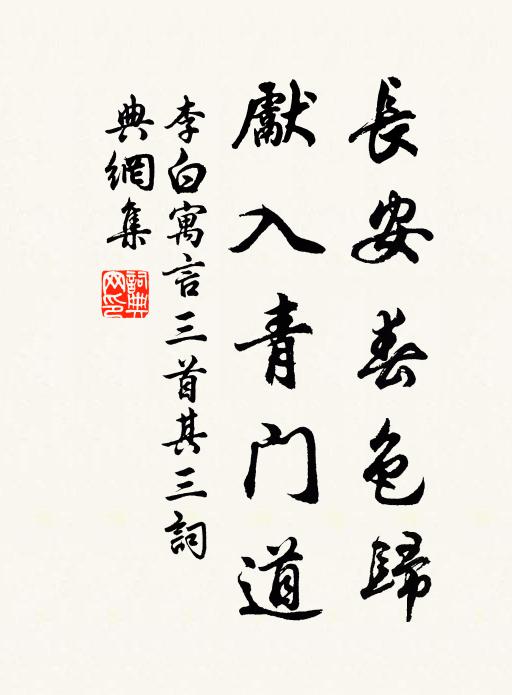 長安春色歸
獻入青門道
李白寓言三首其三詞
典網集
詞典
网印